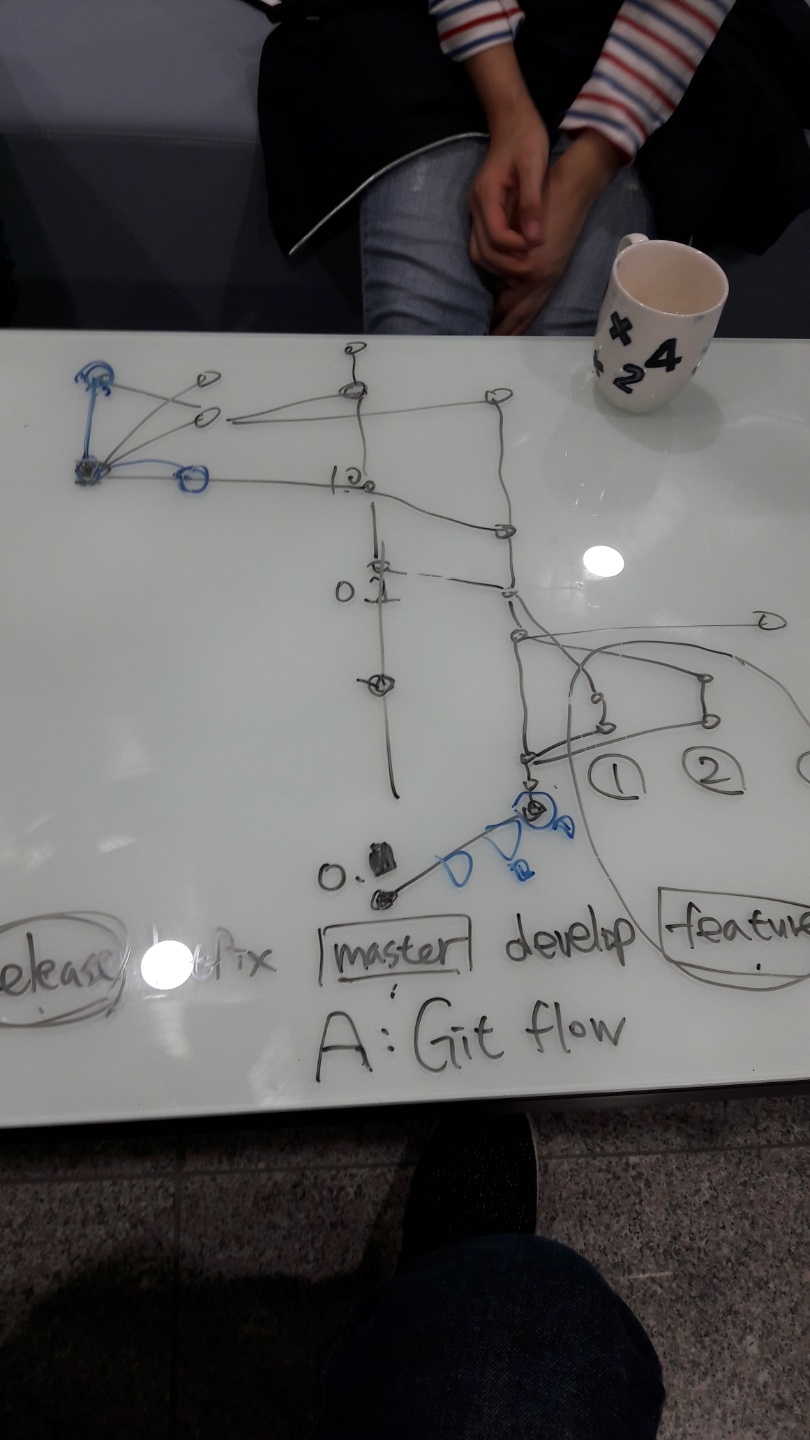 × 4
÷ 2
1.0
0.1
1 2
0.
elease fix master develop feature
A: Git flow